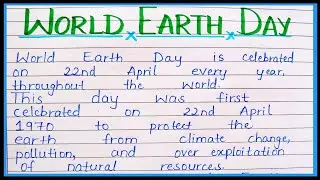 WORLD EARTH DAY
World Earth Day is celebrated
on 22nd April every year.
throughout the world.
This day was first
celebrated on 22nd April
1970 to protect the
earth from climate change,
pollution, and over exploitation
of natural resources.